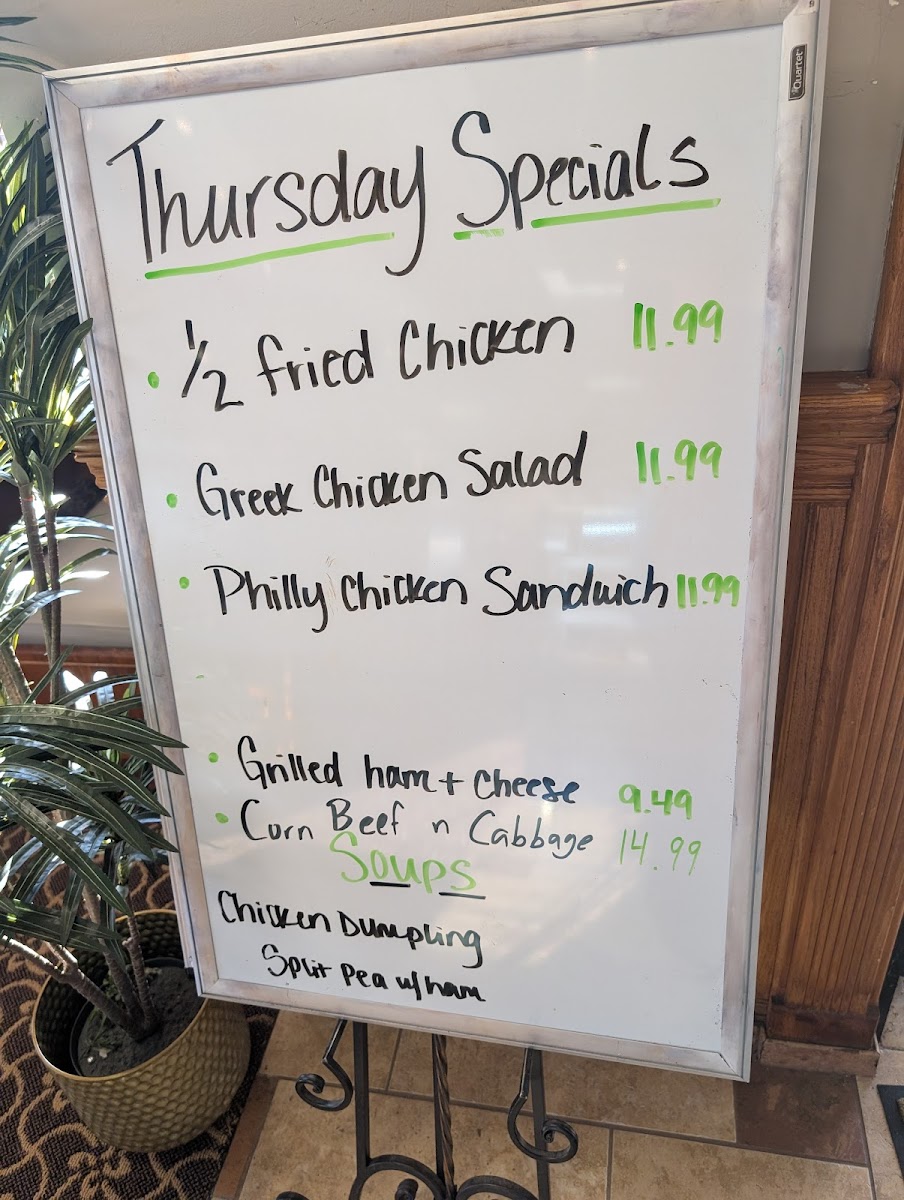 Quartet
Thursday Specials
• 1/2 fried Chicken 11.99
• Greek Chicken Salad 11.99
• Philly Chicken Sandwich 11.99
• Grilled ham + cheese 9.49
• Corn Beef n Cabbage 14.99
Soups
Chicken Dumpling
Split Pea w/ ham